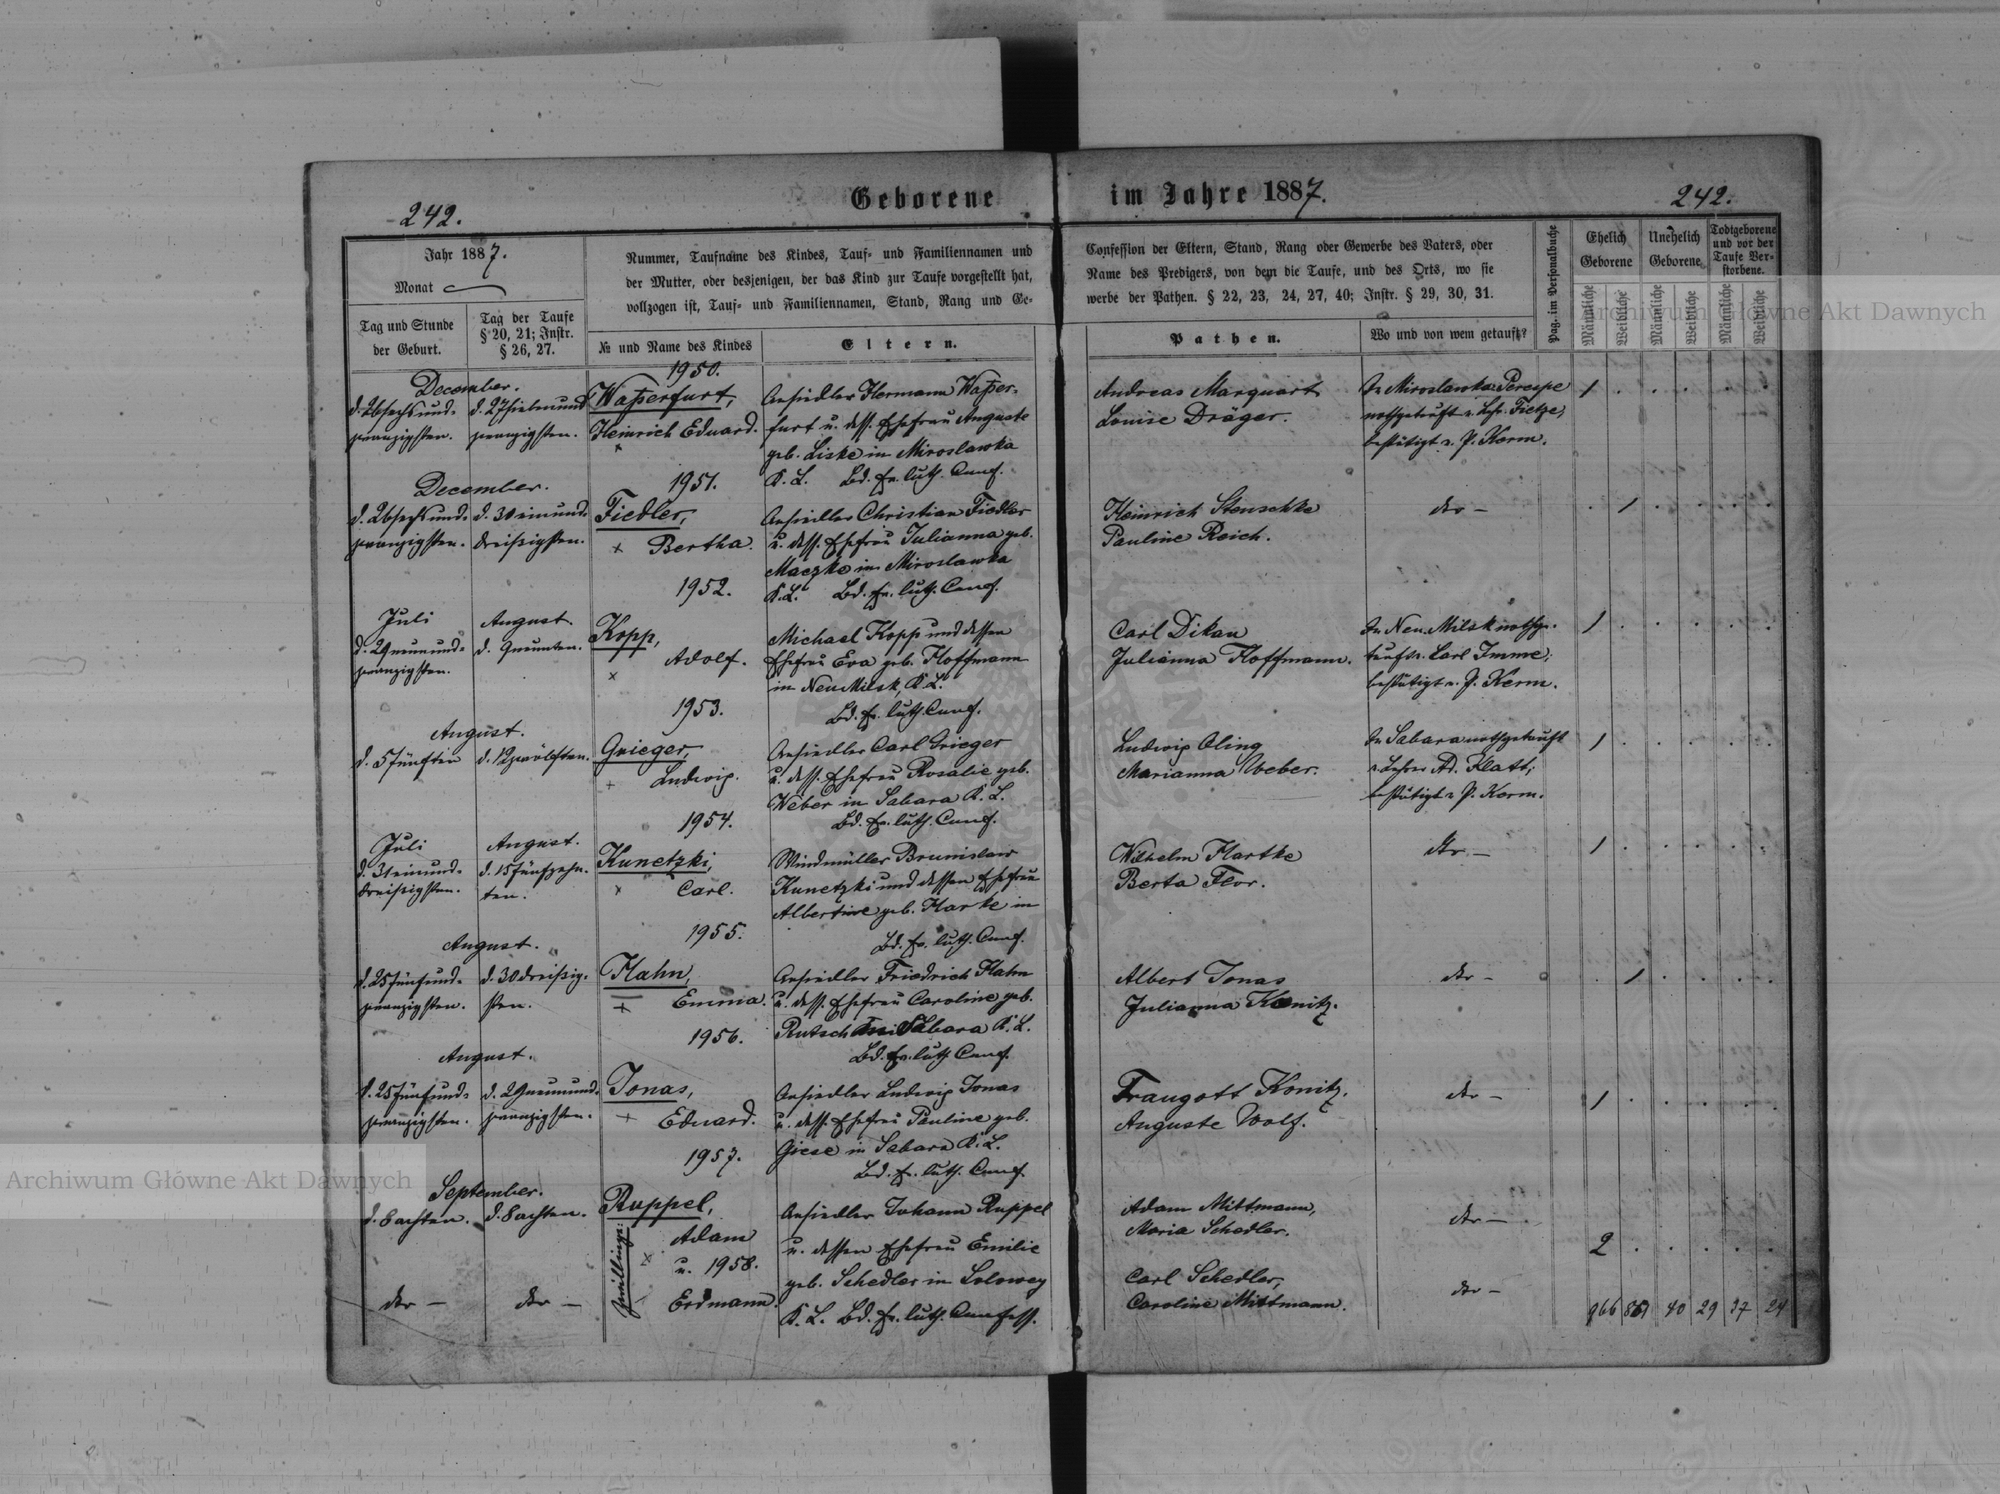 Geborene im Jahre 1887.
242.
242.
Jahr 1887.
Monat
Tag und Stunde
der Geburt.
Tag der Taufe
§ 20, 21; Instr.
§ 26, 27.
Nummer, Taufname des Kindes, Tauf- und Familiennamen und
der Mutter, oder desjenigen, der das Kind zur Taufe vorgestellt hat,
vollzogen ist, Tauf- und Familiennamen, Stand, Rang und Ge-
№ und Name des Kindes
Eltern.
Confession der Eltern, Stand, Rang oder Gewerbe des Vaters, oder
Name des Predigers, von dem die Taufe, und des Orts, wo sie
werbe der Pathen. § 22, 23, 24, 27, 40; Instr. § 29, 30, 31.
Pathen.
Wo und von wem getauft?
Pag. im Personalbuche
Ehelich
Geborene
Unehelich
Geborene
Todtgeborene
und vor der
Taufe Ver-
storbene.
Männliche
Weibliche
Männliche
Weibliche
Männliche
Weibliche
December.
d. 26 sechsund-
zwanzigsten.
d. 27 siebenund
zwanzigsten.
1950.
Waßerfurt,
Heinrich Eduard.
Ansiedler Hermann Waßer-
furt u. dess. Ehefrau Auguste
geb. Liske in Miroslawka
K. L. Bd. ev. luth. Conf.
Andreas Marquart
Louise Dräger.
In Miroslawka Perespe
nothgetauft v. Lehr. Tietze;
bestätigt v. P. Kerm.
1 . . . . .
December.
d. 26 sechsund-
zwanzigsten.
d. 31 einund-
dreißigsten.
1951.
Fiedler,
Bertha.
Ansiedler Christian Fiedler
u. dess. Ehefrau Julianna geb.
Maczke in Miroslawka
K. L. Bd. ev. luth. Conf.
Heinrich Stenschke
Pauline Reich.
dto –
. 1 . . . .
Juli
d. 29 neunund-
zwanzigsten.
August.
d. 9 neunten.
1952.
Kopp,
Adolf.
Michael Kopp und dessen
Ehefrau Eva geb. Hoffmann
in Neu Milsk, K. L.
Bd. ev. luth. Conf.
Carl Dikau
Julianna Hoffmann.
In Neu Milsk nothge-
tauft v. Carl Imme;
bestätigt v. P. Kerm.
1 . . . . .
August.
d. 5 fünften
d. 12 zwölften.
1953.
Grieger,
Ludwig.
Ansiedler Carl Grieger
u. dess. Ehefrau Rosalie geb.
Weber in Sabara K. L.
Bd. ev. luth. Conf.
Ludwig Oling
Marianna Weber.
In Sabara nothgetauft
v. Lehrer Ad. Klatt;
bestätigt v. P. Kerm.
1 . . . . .
Juli
d. 31 einund-
dreißigsten.
August.
d. 15 fünfzehn-
ten.
1954.
Kunetzki,
Carl.
Windmüller Brunislaw
Kunetzki und dessen Ehefrau
Albertine geb. Harke in
Bd. ev. luth. Conf.
Wilhelm Hartke
Berta Flor.
dto –
1 . . . . .
August.
d. 25 fünfund-
zwanzigsten.
d. 30 dreißig-
sten.
1955.
Hahn,
Emma.
Ansiedler Friedrich Hahn
u. dess. Ehefrau Caroline geb.
Rutsch in Sabara K. L.
Bd. ev. luth. Conf.
Albert Jonas
Julianna Konitz.
dto –
. 1 . . . .
August.
d. 25 fünfund-
zwanzigsten.
d. 29 neunund-
zwanzigsten.
1956.
Jonas,
Eduard.
Ansiedler Ludwig Jonas
u. dess. Ehefrau Pauline geb.
Giese in Sabara K. L.
Bd. ev. luth. Conf.
Traugott Konitz.
Auguste Wolf.
dto –
1 . . . . .
September.
d. 8 achten.
d. 8 achten.
1957.
Ruppel,
Zwillinge:
Adam
u. 1958.
Erdmann.
Ansiedler Johann Ruppel
u. dessen Ehefrau Emilie
geb. Schedler in Solowey
K. L. Bd. ev. luth. Confess.
Adam Mittmann,
Maria Schedler.
dto –
2 . . . . .
dto –
dto –
Carl Schedler,
Caroline Mittmann.
dto –
966 40 29 37 24
Archiwum Główne Akt Dawnych
Archiwum Główne Akt Dawnych